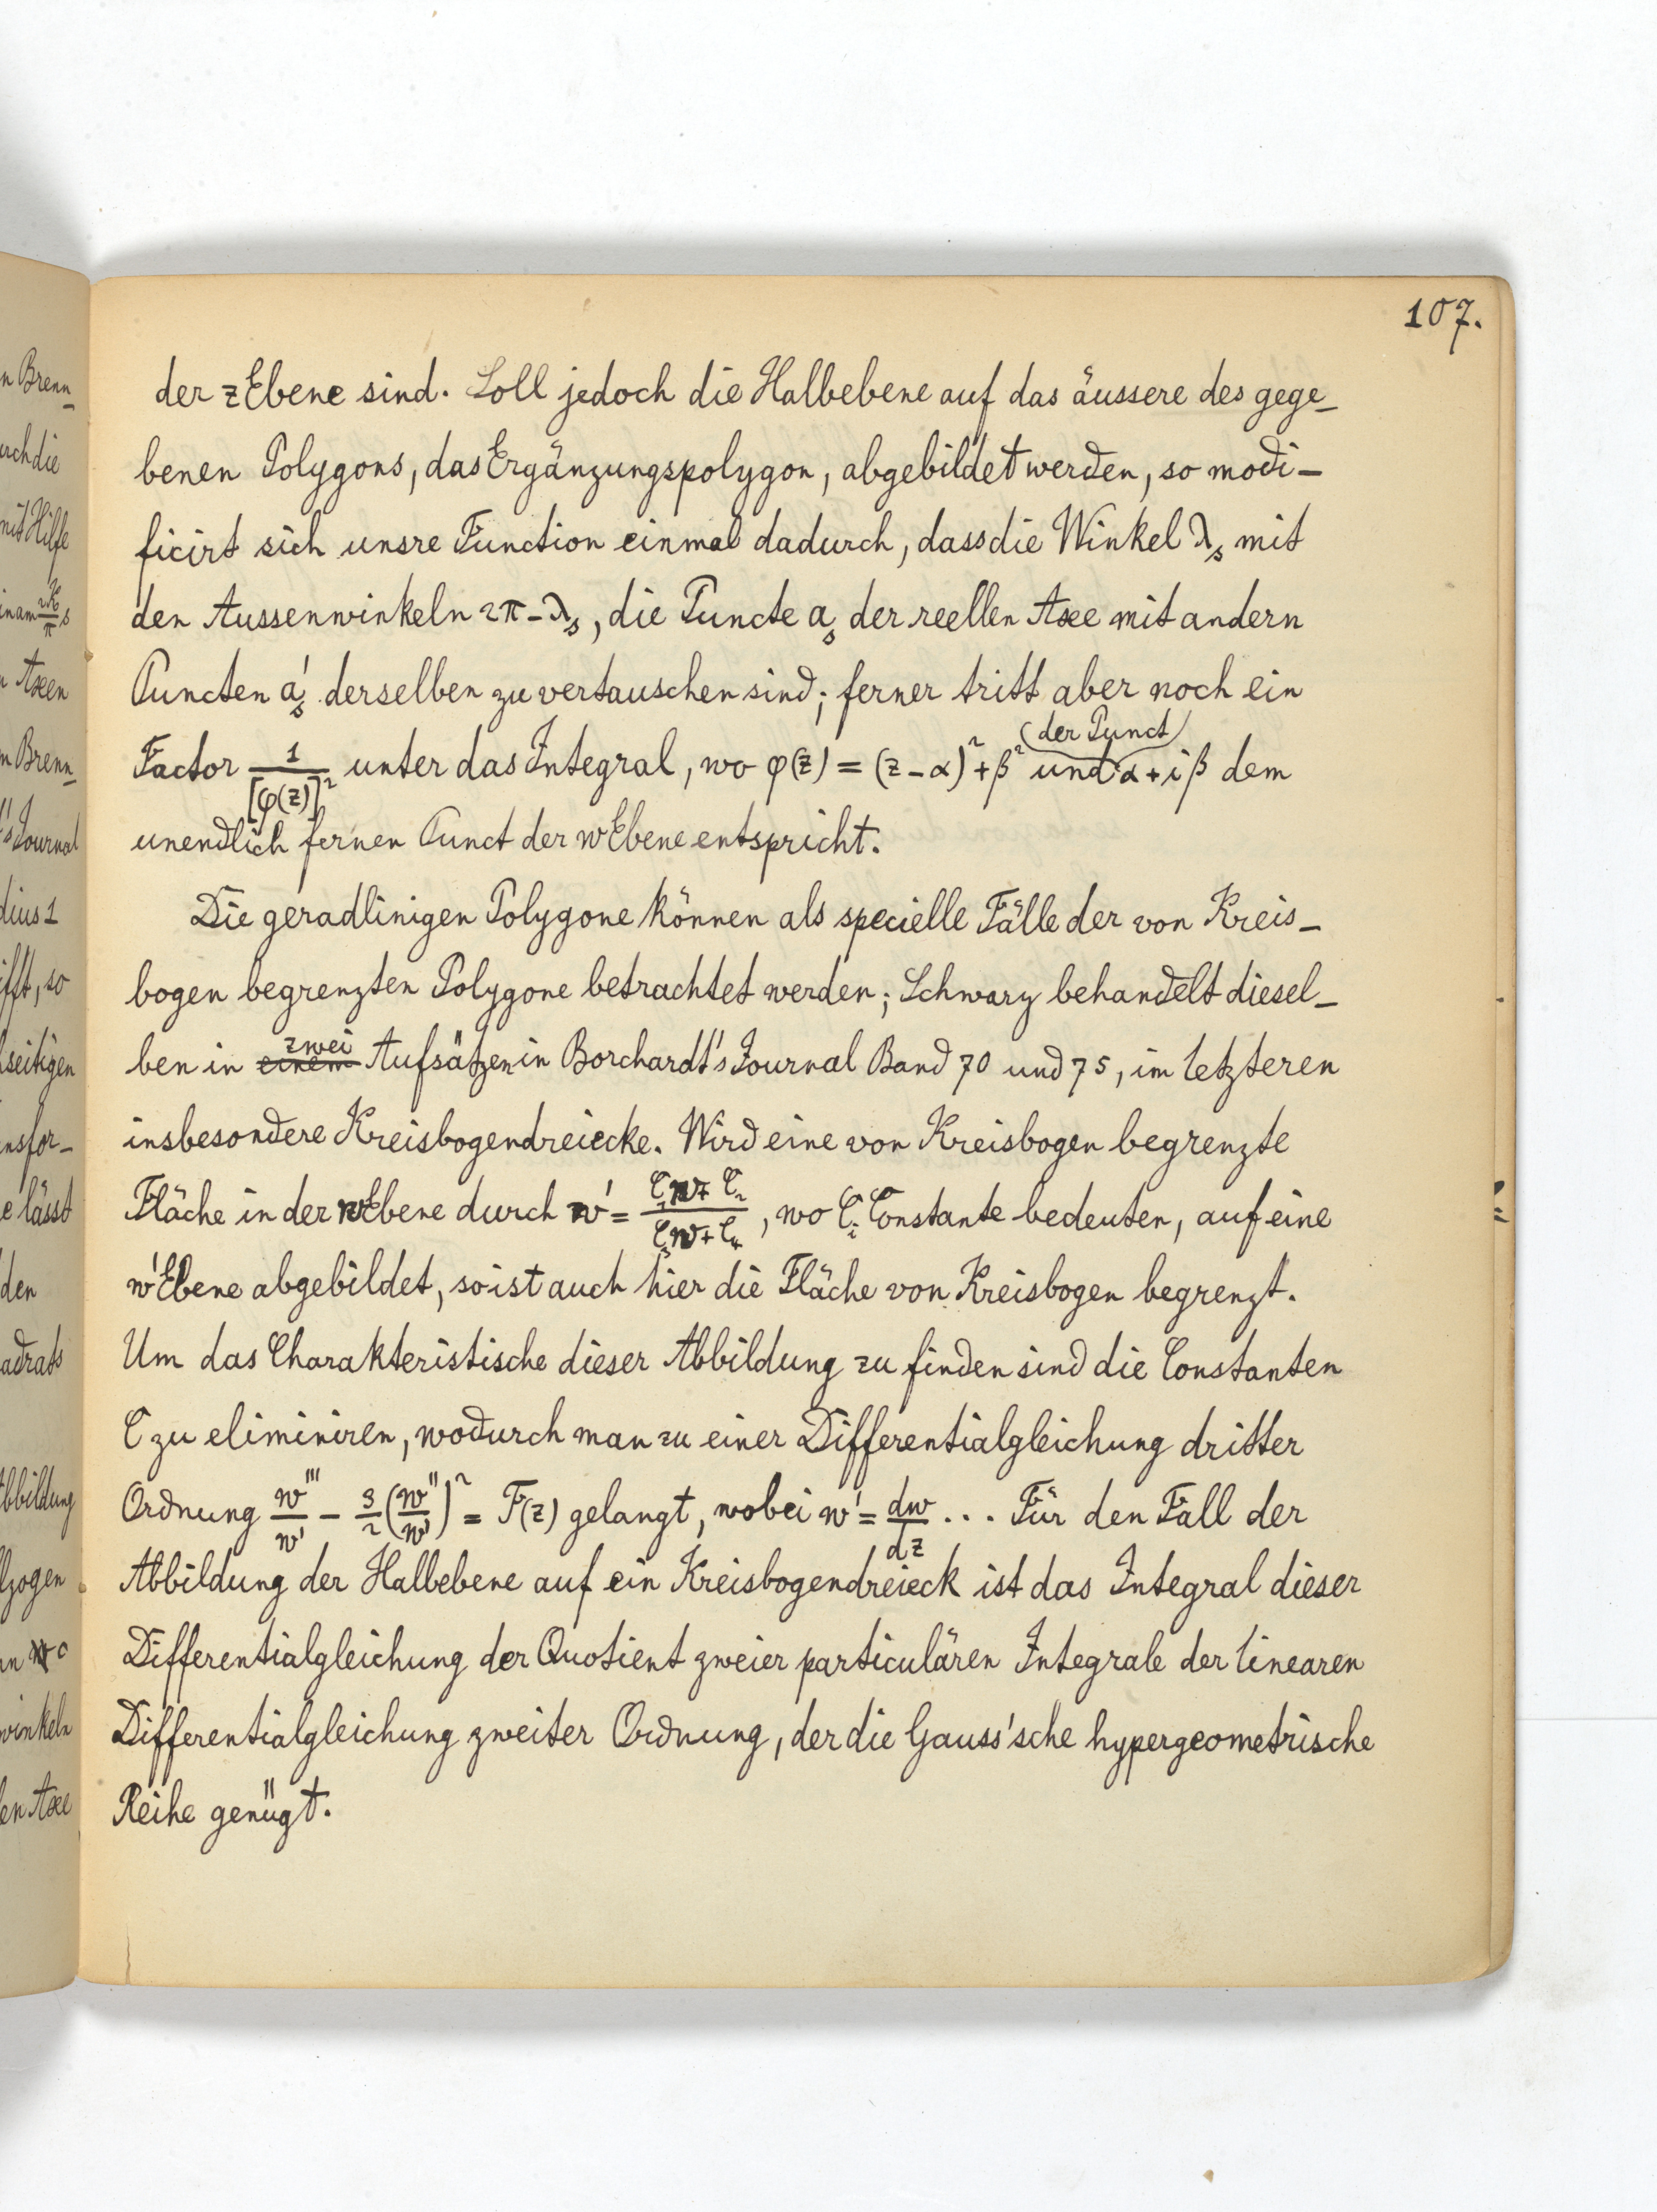 107.
der zEbene sind. Soll jedoch die Halbebene auf das äussere des gege-
benen Polygons, das Ergänzungspolygon, abgebildet werden, so modi-
ficirt sich unsre Function einmal dadurch, dass die Winkel λₛ mit
den Aussenwinkeln 2π-λₛ, die Puncte aₛ der reellen Axe mit andern
Puncten a'ₛ derselben zu vertauschen sind; ferner tritt aber noch ein
Factor 1/[φ(z)]² unter das Integral, wo φ(z) = (z-α)²+β² und der Punct α+iβ dem
unendlich fernen Punct der wEbene entspricht.
Die geradlinigen Polygone können als specielle Fälle der von Kreis-
bogen begrenzten Polygone betrachtet werden; Schwarz behandelt diesel-
ben in einem zwei Aufsätzen in Borchardt's Journal Band 70 und 75, im letzteren
insbesondere Kreisbogendreiecke. Wird eine von Kreisbogen begrenzte
Fläche in der wEbene durch w' = (C₁w+C₂)/(C₃w+C₄), wo Cᵢ Constante bedeuten, auf eine
w'Ebene abgebildet, so ist auch hier die Fläche von Kreisbogen begrenzt.
Um das Charakteristische dieser Abbildung zu finden sind die Constanten
C zu eliminiren, wodurch man zu einer Differentialgleichung dritter
Ordnung w'''/w' - 3/2 (w''/w')² = F(z) gelangt, wobei w' = dw/dz ... Für den Fall der
Abbildung der Halbebene auf ein Kreisbogendreieck ist das Integral dieser
Differentialgleichung der Quotient zweier particulären Integrale der linearen
Differentialgleichung zweiter Ordnung, der die Gauss'sche hypergeometrische
Reihe genügt.